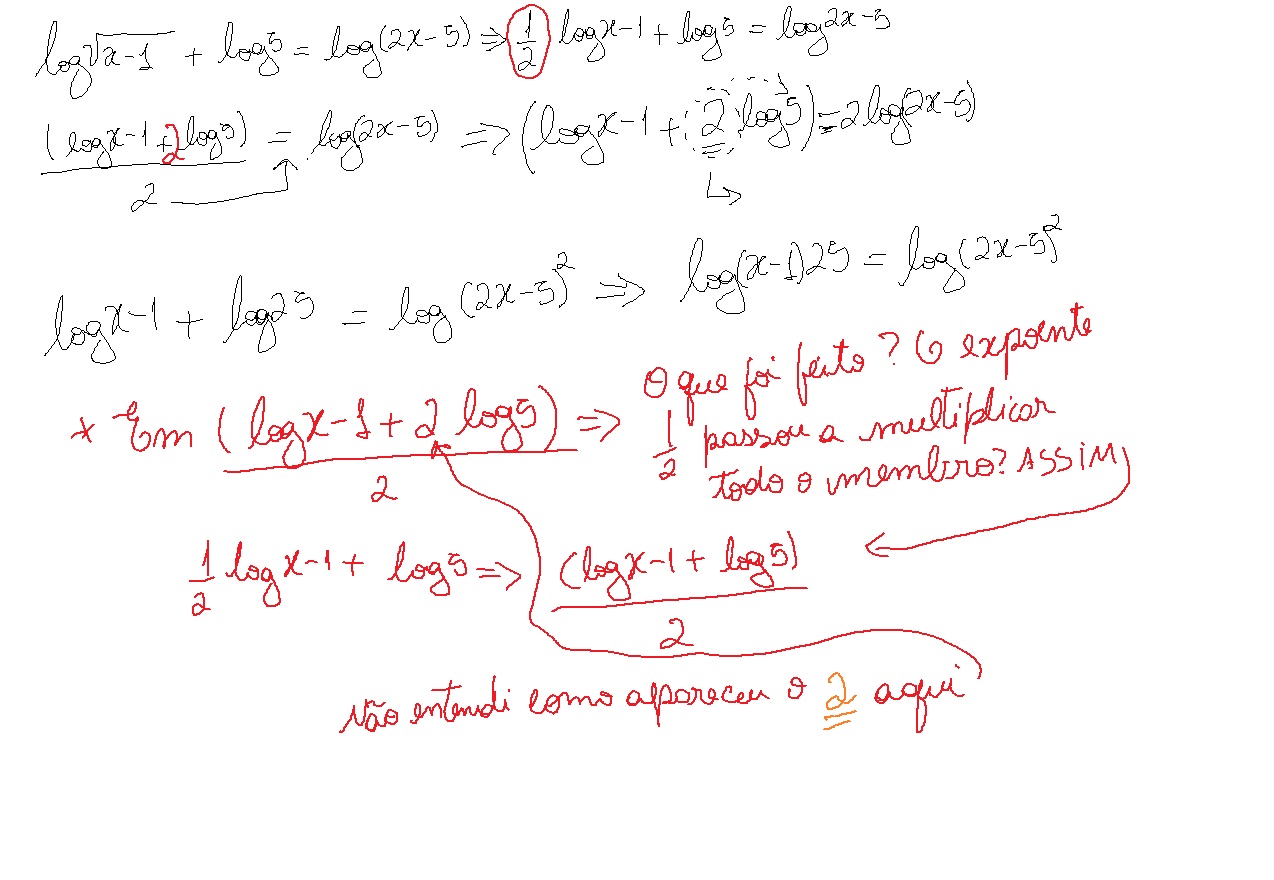 log√x-1 + log5 = log(2x-5) ⇒ 1/2 logx-1 + log5 = log2x-5
(logx-1 + 2log5)/2 = log(2x-5) ⇒ (logx-1 + 2 log5) = 2log(2x-5)
logx-1 + log25 = log(2x-5)² ⇒ log(x-1)25 = log(2x-5)²
* Em (logx-1 + 2 log5)/2 ⇒ O que foi feito? O expoente
1/2 passou a multiplicar
todo o membro? ASSIM
1/2 logx-1 + log5 ⇒ (logx-1 + log5)/2
Não entendi como apareceu o 2 aqui